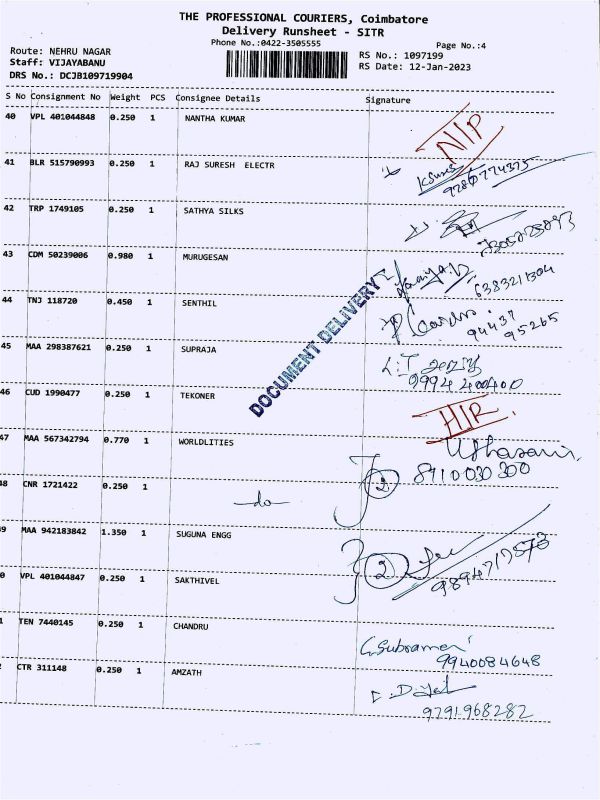 THE PROFESSIONAL COURIERS, Coimbatore
Delivery Runsheet - SITR
Phone No.:0422-3505555
Page No.:4
Route: NEHRU NAGAR
RS No.: 1097199
Staff: VIJAYABANU
RS Date: 12-Jan-2023
DRS No.: DCJB109719904
S No Consignment No Weight PCS Consignee Details Signature
40 VPL 401044848 0.250 1 NANTHA KUMAR N/P
41 BLR 515790993 0.250 1 RAJ SURESH ELECTR
42 TRP 1749105 0.250 1 SATHYA SILKS
43 CDM 50239006 0.980 1 MURUGESAN
6383211304
44 TNJ 118720 0.450 1 SENTHIL
94437
95265
DOCUMENT DELIVERY
45 MAA 298387621 0.250 1 SUPRAJA
9994 400400
46 CUD 1990477 0.250 1 TEKONER
47 MAA 567342794 0.770 1 WORLDLITIES
8910030300
48 CNR 1721422 0.250 1 -do- 2
49 MAA 942183842 1.350 1 SUGUNA ENGG
2
9894717573
0 VPL 401044847 0.250 1 SAKTHIVEL
1 TEN 7440145 0.250 1 CHANDRU
9940084648
2 CTR 311148 0.250 1 AMZATH
9791968282